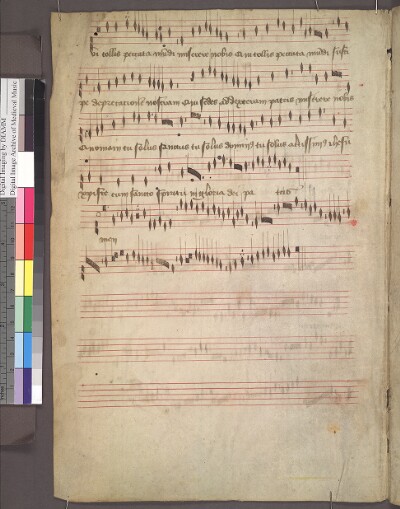 Qui tollis peccata mūdi miserere nobis Qui tollis peccata mūdi susci
pe deprecationē nostram Qui sedes ad dexteram patris miserere nobis
Quoniam tu solus sanctus tu solus domin9 tu solus altissim9
cum sancto spiritu in gloria dei pa tris
amen
Digital Imaging by DIAMM
Digital Image Archive of Medieval Music